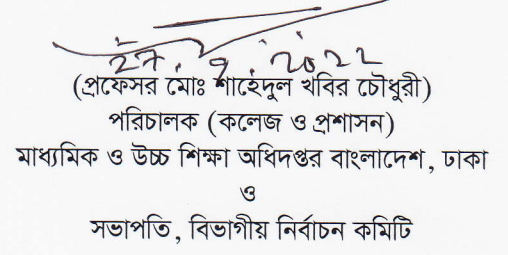 27.9.2022
(প্রফেসর মোঃ শাহেদুল খবির চৌধুরী)
পরিচালক (কলেজ ও প্রশাসন)
মাধ্যমিক ও উচ্চ শিক্ষা অধিদপ্তর বাংলাদেশ, ঢাকা
ও
সভাপতি, বিভাগীয় নির্বাচন কমিটি